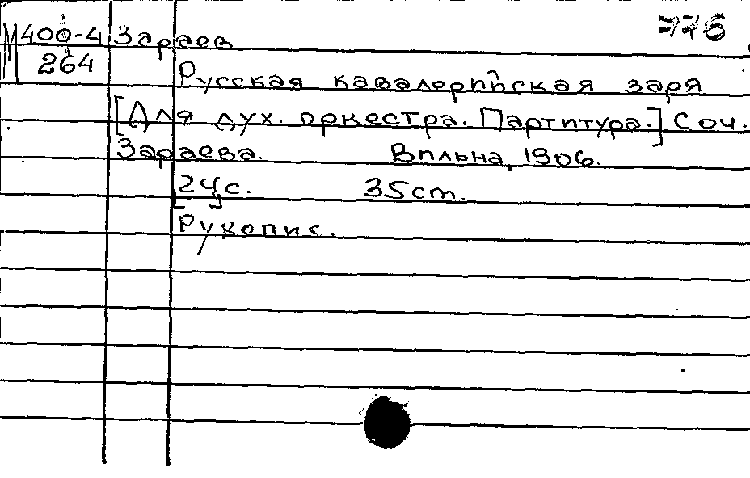 775
М 400-4 Зараев
264
Русская кавалерийская заря
[Для дух. оркестра. Партитура.] Соч.
Зараева. Вильна, 1906.
[24]с. 35cm.
Рукопис.